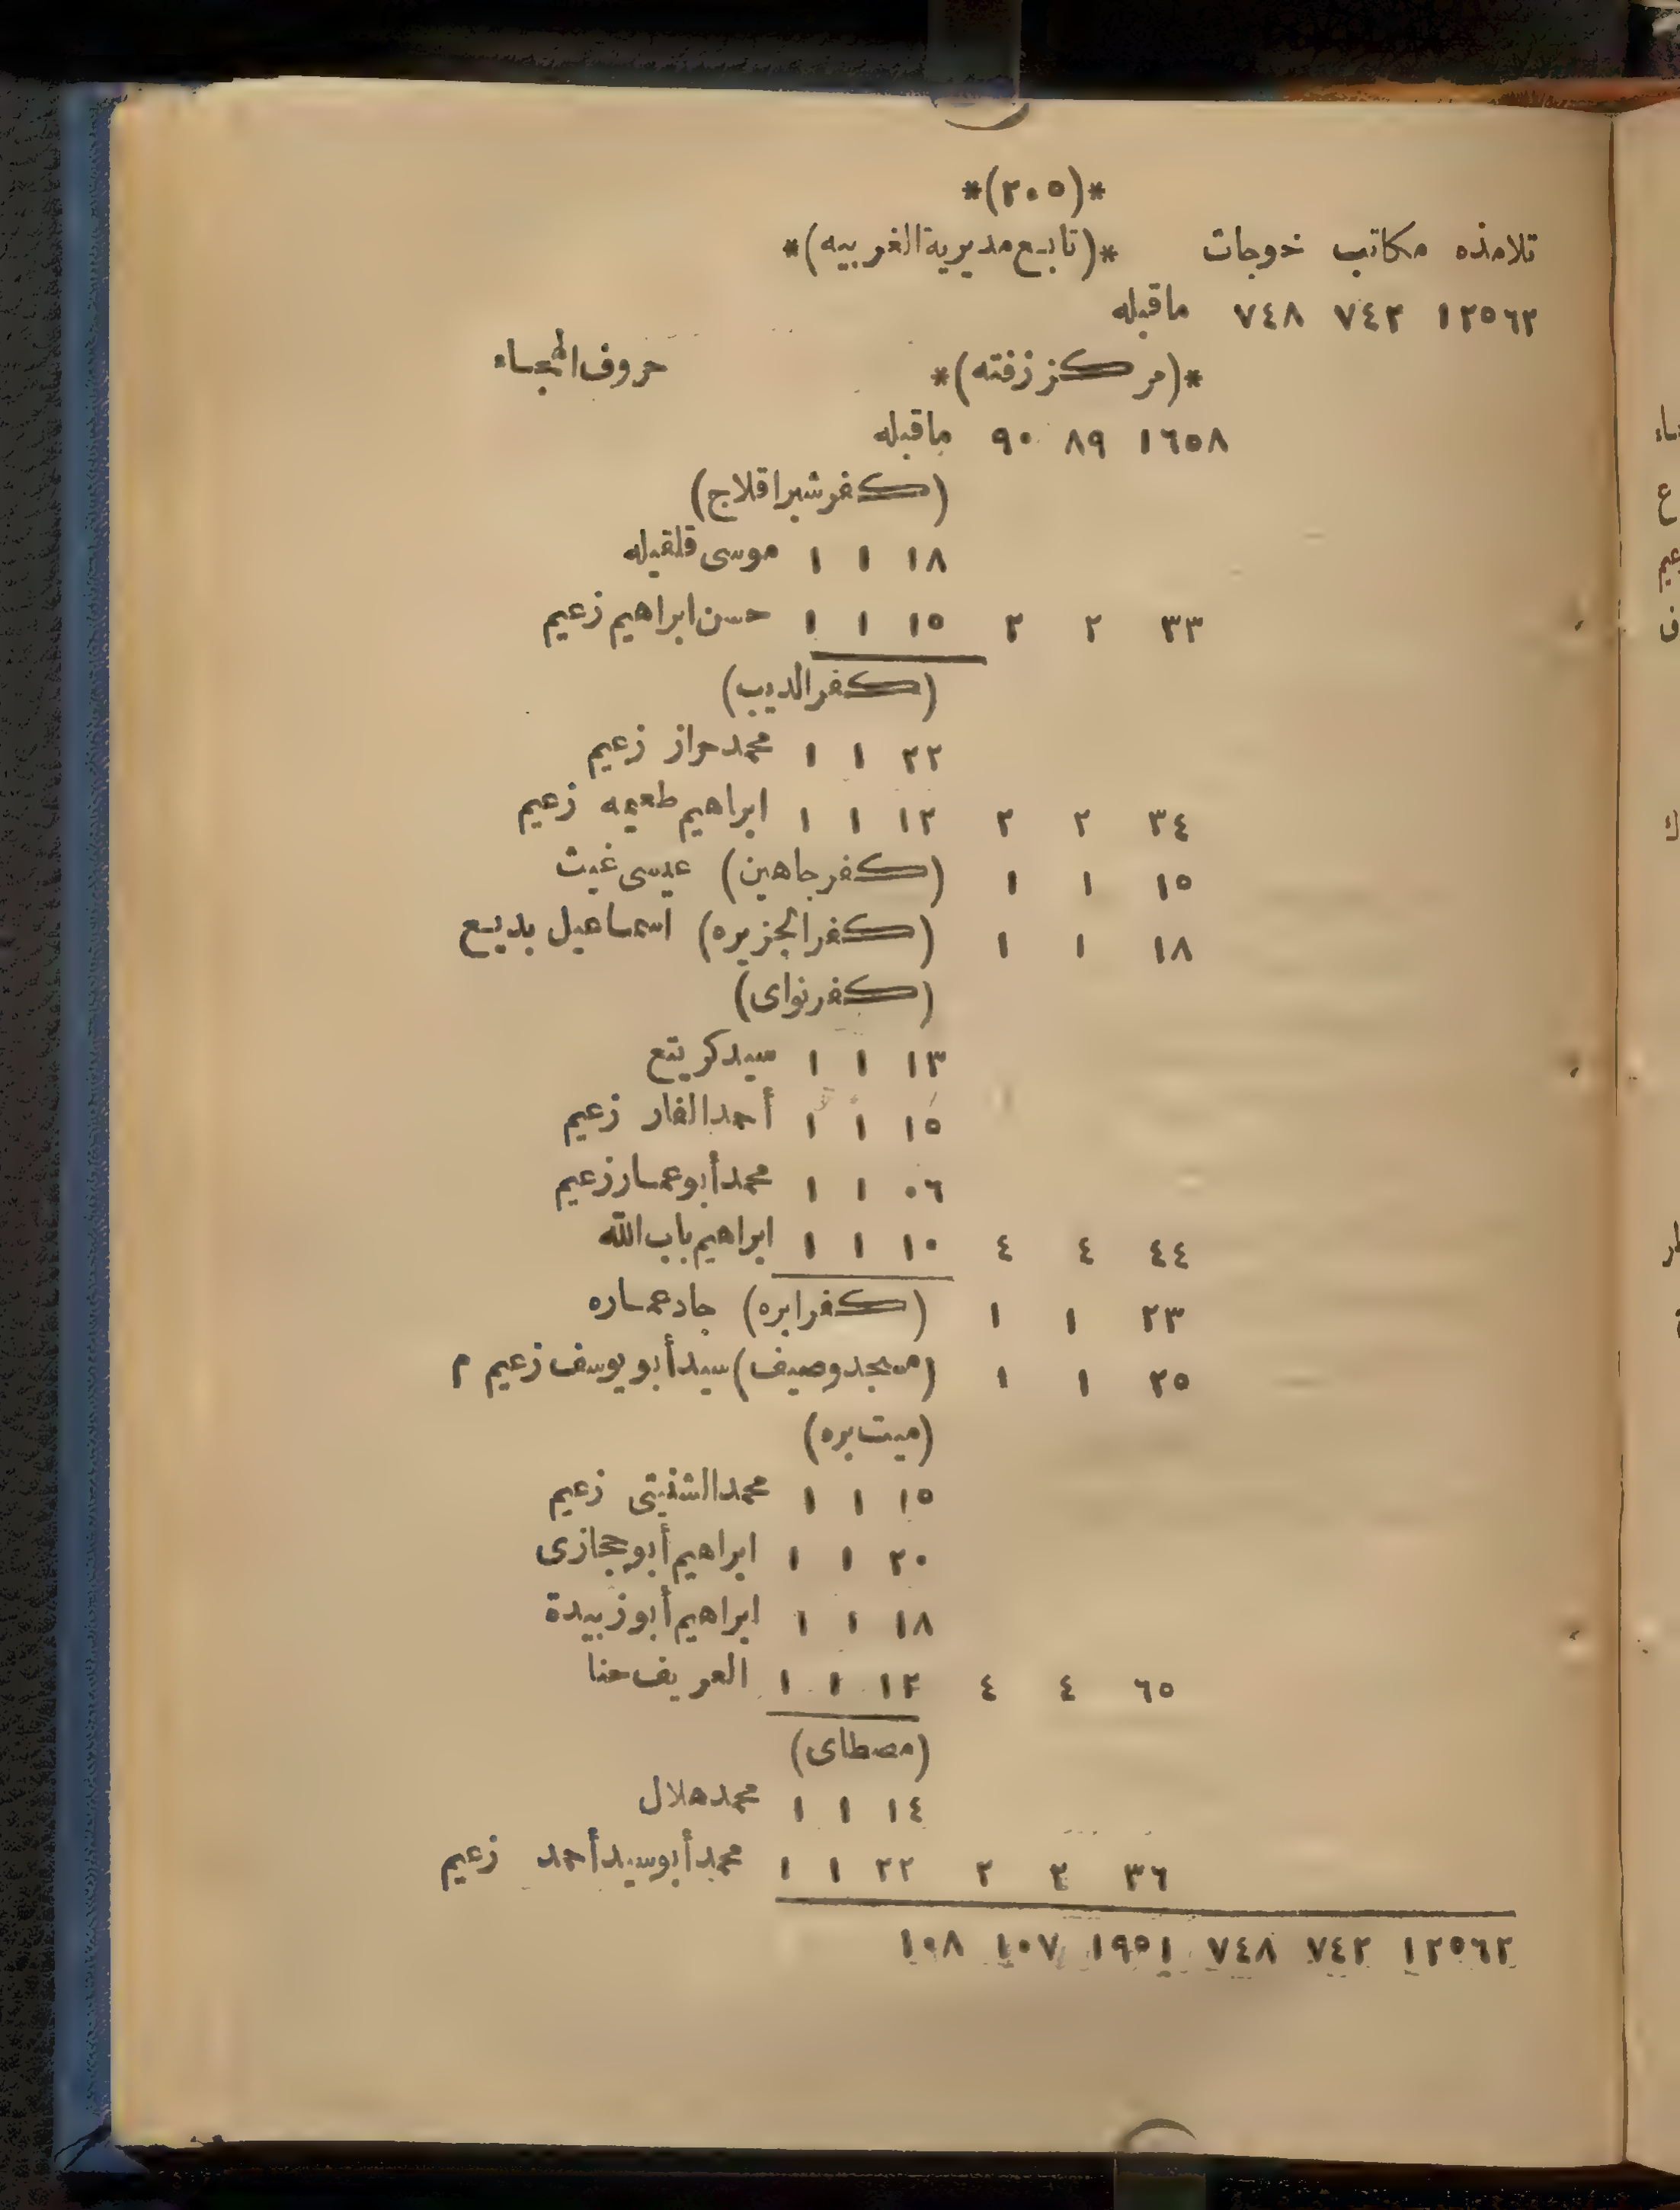 *(٢٠٥)*
تلامذه مكاتب خوجات *(تابع مديرية الغربيه)*
١٢٥٦٢ ٧٤٢ ٧٤٨ ماقبله
*(مركز زفته)* حروف الهجاء
١٦٥٨ ٨٩ ٩٠ ماقبله
(كفر شبرا قلاج)
١٨ ١ ١ موسى قلقيله
٣٣ ٢ ٢ ١٥ ١ ١ حسن ابراهيم زعيم
(كفر الديب)
٢٢ ١ ١ محمد حراز زعيم
٣٤ ٢ ٢ ١٢ ١ ١ ابراهيم طعيمه زعيم
١٥ ١ ١ (كفر جاهين) عيسى غيث
١٨ ١ ١ (كفر الجزيره) اسماعيل بديع
(كفر نواى)
١٣ ١ ١ سيد كريتع
١٥ ١ ١ أحمد الفار زعيم
٠٦ ١ ١ محمد أبو عمار زعيم
٤٤ ٤ ٤ ١٠ ١ ١ ابراهيم باب الله
٢٣ ١ ١ (كفر ابره) جاد عماره
٢٥ ١ ١ (مسجد وصيف) سيد أبو يوسف زعيم م
(ميت بره)
١٥ ١ ١ محمد الشنيتى زعيم
٢٠ ١ ١ ابراهيم أبو حجازى
١٨ ١ ١ ابراهيم أبو زبيدة
٦٥ ٤ ٤ ١٢ ١ ١ العريف حنا
(مصطاى)
١٤ ١ ١ محمد هلال
٣٦ ٢ ٢ ٢٢ ١ ١ محمد أبو سيد أحمد زعيم
١٢٥٦٢ ٧٤٢ ٧٤٨ ١٩٥١ ١٠٧ ١٠٨